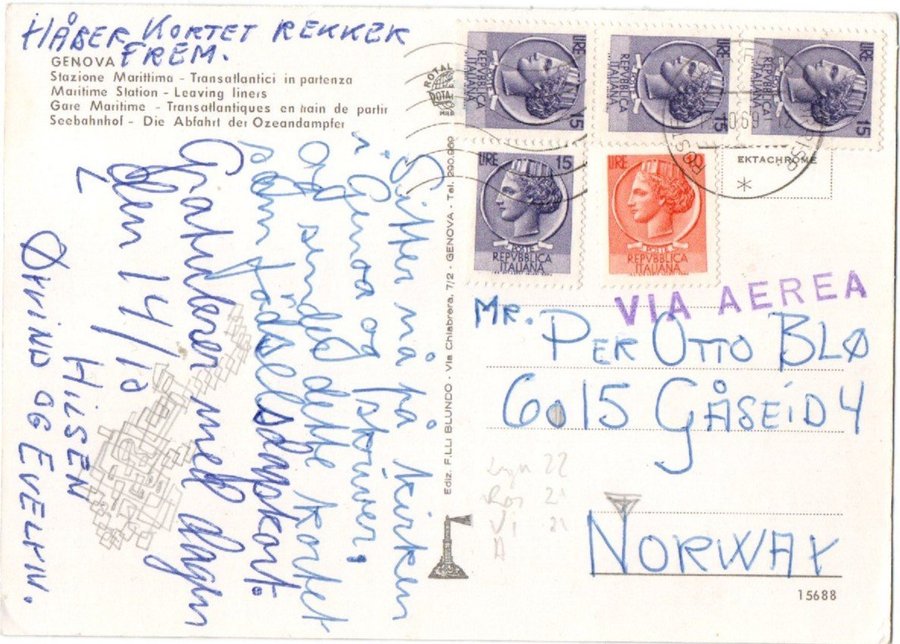 HÅBER KORTET REKKER
FREM.
GENOVA
Stazione Marittima - Transatlantici in partenza
Maritime Station - Leaving liners
Gare Maritime - Transatlantiques en train de partir
Seebahnhof - Die Abfahrt der Ozeandampfer
Sitter nå på kirken
i Genova og skriver,
og sender dette kortet
som födselsdagskort.
Gratulerer med dagen
den 14/10
HILSEN
ØYVIND OG EVELYN.
Ediz. F.LLI BLUNDO - Via Chiabrera, 7/2 - GENOVA - Tel. 200.969
LIRE 15
REPVBBLICA
ITALIANA
LIRE 15
REPVBBLICA
ITALIANA
LIRE 15
REPVBBLICA
ITALIANA
LIRE 15
POSTE
REPVBBLICA
ITALIANA
LIRE
POSTE
REPVBBLICA
ITALIANA
EKTACHROME
VIA AEREA
MR. PER OTTO BLØ
6015 GÅSEID 4
NORWAY
15688